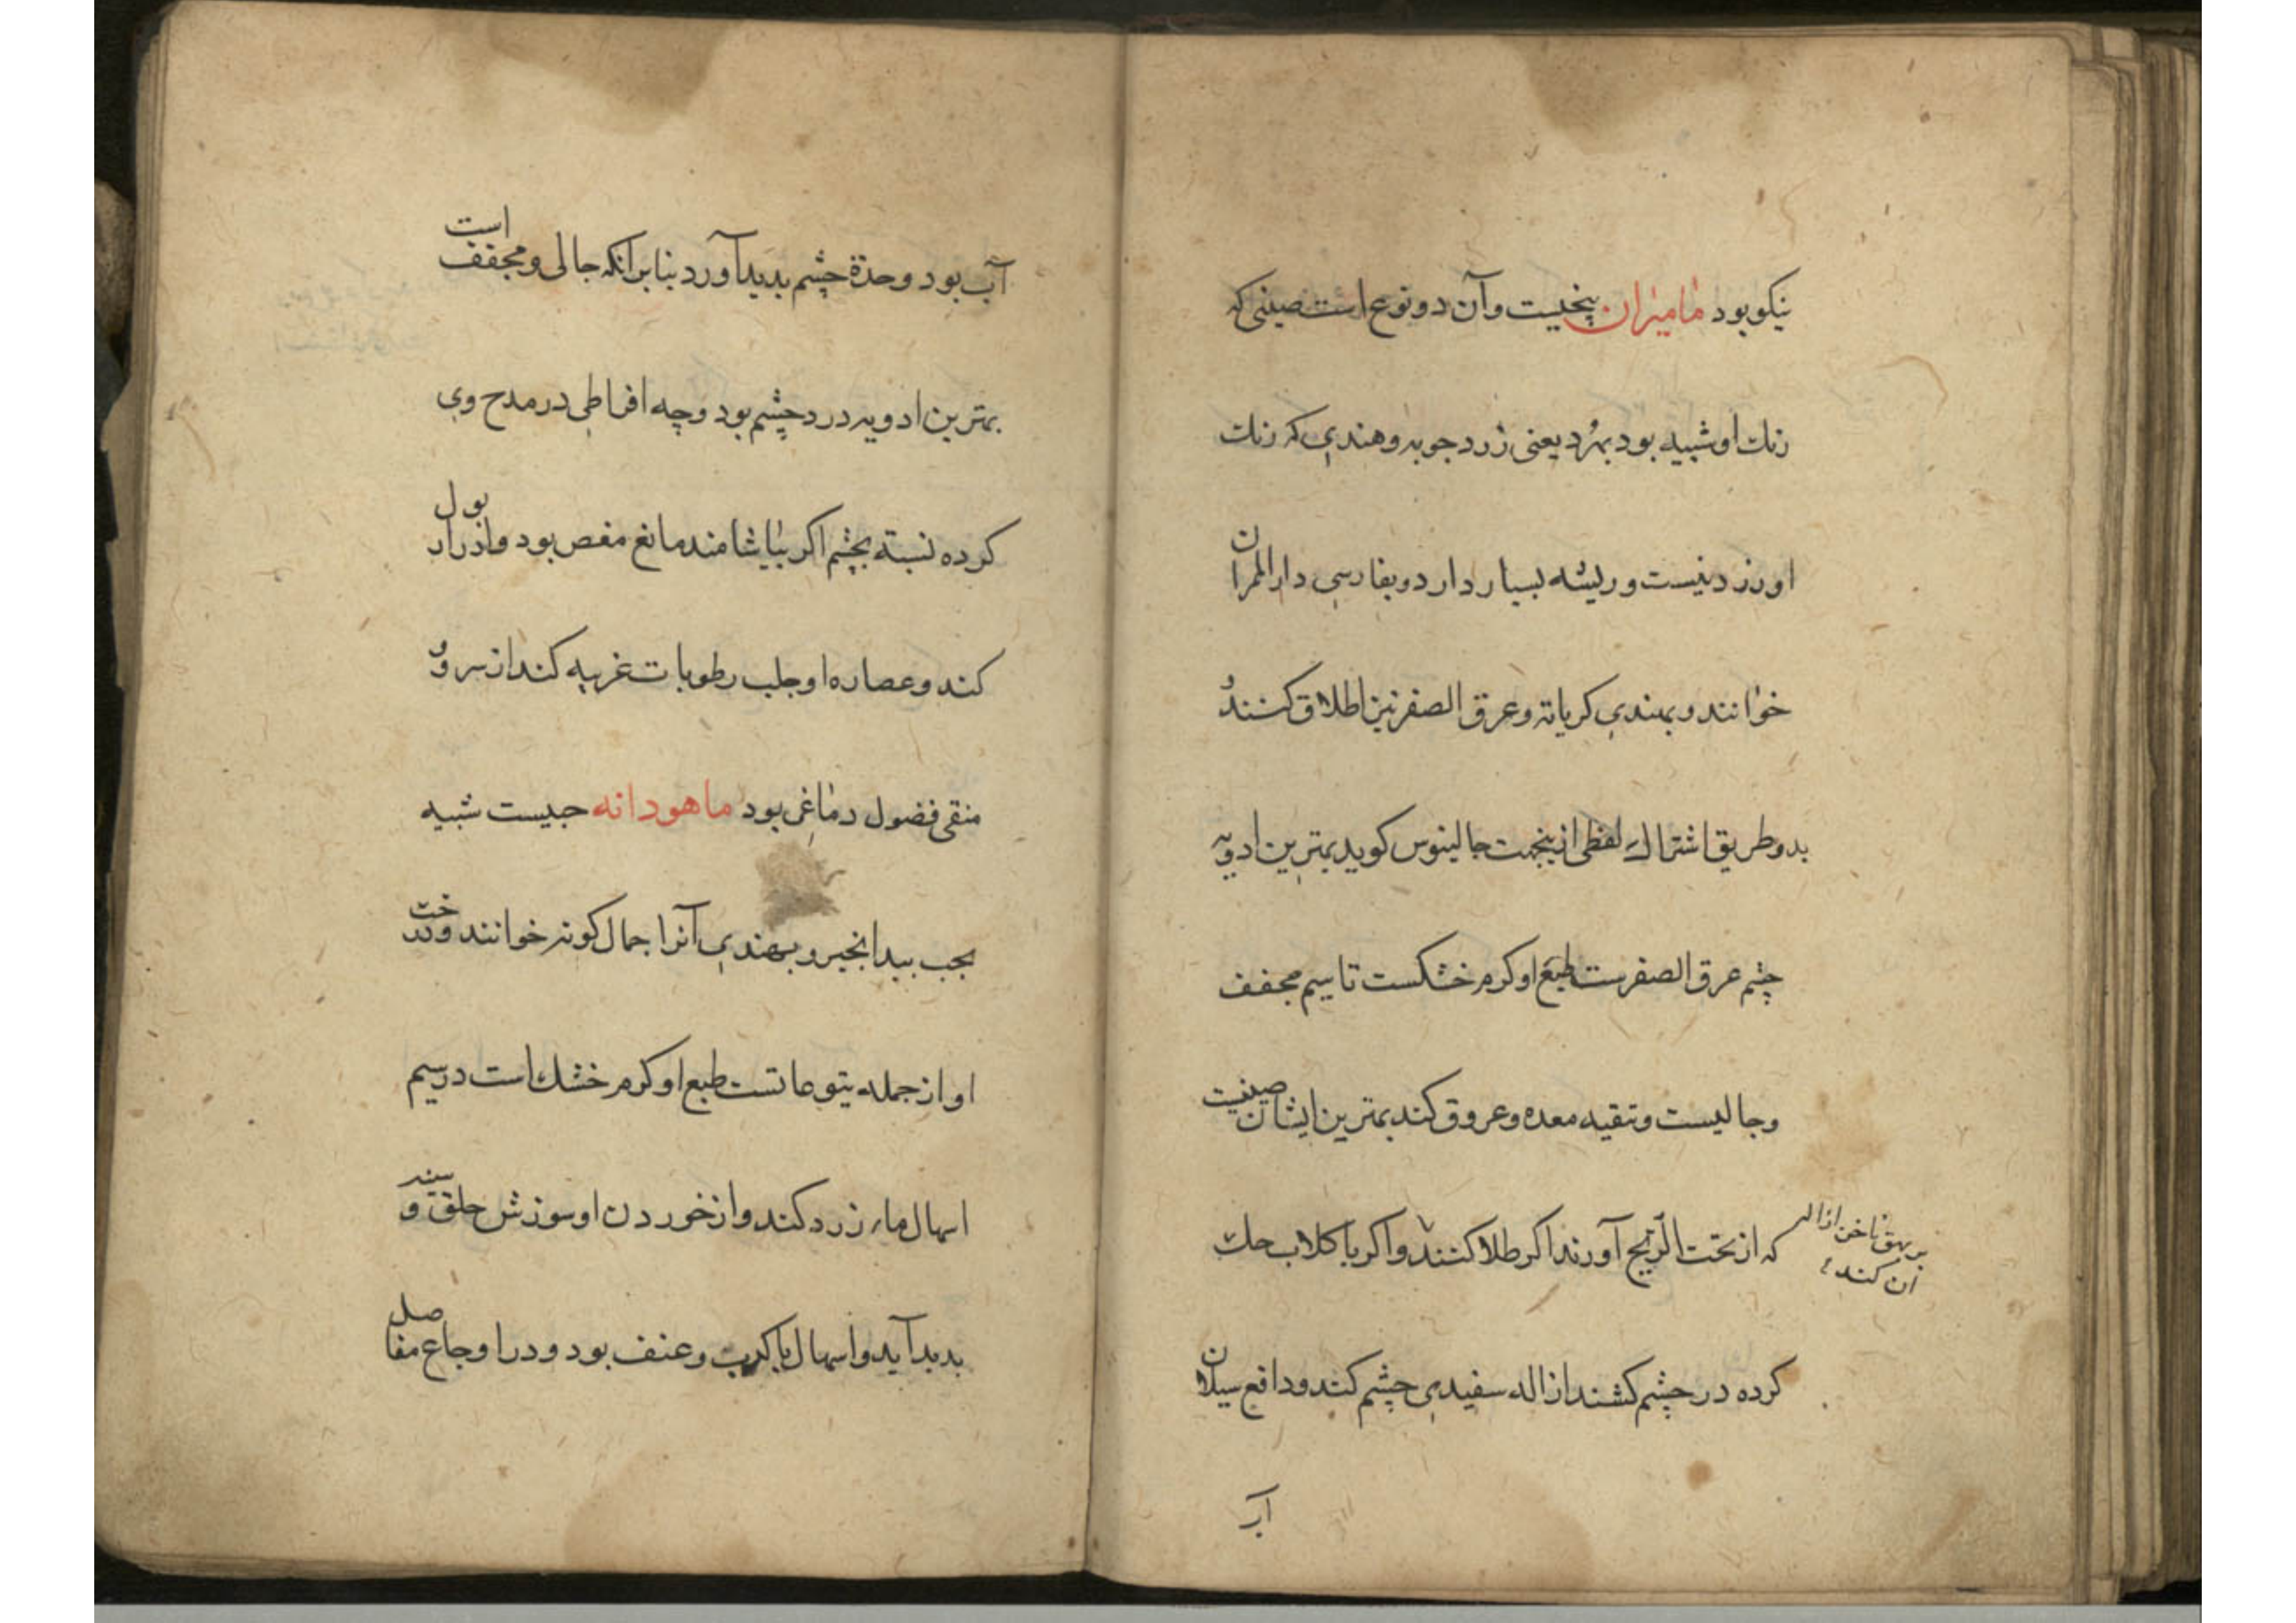 نیکو بود مامیران بیخیست و آن دو نوع است صینی که
رنك او شبیه بود بهرد یعنی زرد جوبه و هندی که رنك
او زرد نیست و ریشه بسیار دارد و بفارسی دار المران
خوانند و بهندی کریاته و عرق الصفر نیز اطلاق کنند و
بدو طریق اشتراك لفظی ازینجهت جالینوس کوید بهترین ادویه
چشم عرق الصفرست طبع او کرم خشکست تا سیم مجفف
و جالیست و تنقیه معده و عروق کند بهترین ایشان صینیست
که از تحت الریح آورند اکر طلا کنند و اکر با کلاب حك
بر بهق ناخن ازاله
آن کند
کرده در چشم کشند ازاله سفیدی چشم کند و دافع سیلان
آب
آب بود و حدة چشم بدید آورد بنا برانکه جالی و مجفف است
بهترین ادویه درد چشم بود و چه افراطی در مدح وی
کرده نسبته بچشم اکر بیاشامند مانع مغص بود و ادرار بول
کند و عصاره او جلب رطوبات غریبه کند از سر و
منقی فضول دماغی بود ماهودانه حبیست شبیه
بحب بیدانجیر و بهندی آنرا جمال کوته خوانند و درخت
او از جمله یتوعاتست طبع او کرم خشك است در سیم
اسهال ماء زرد کند و از خوردن او سوزش حلق و سینه
بدید آید و اسهال با کرب و عنف بود و در اوجاع مفاصل